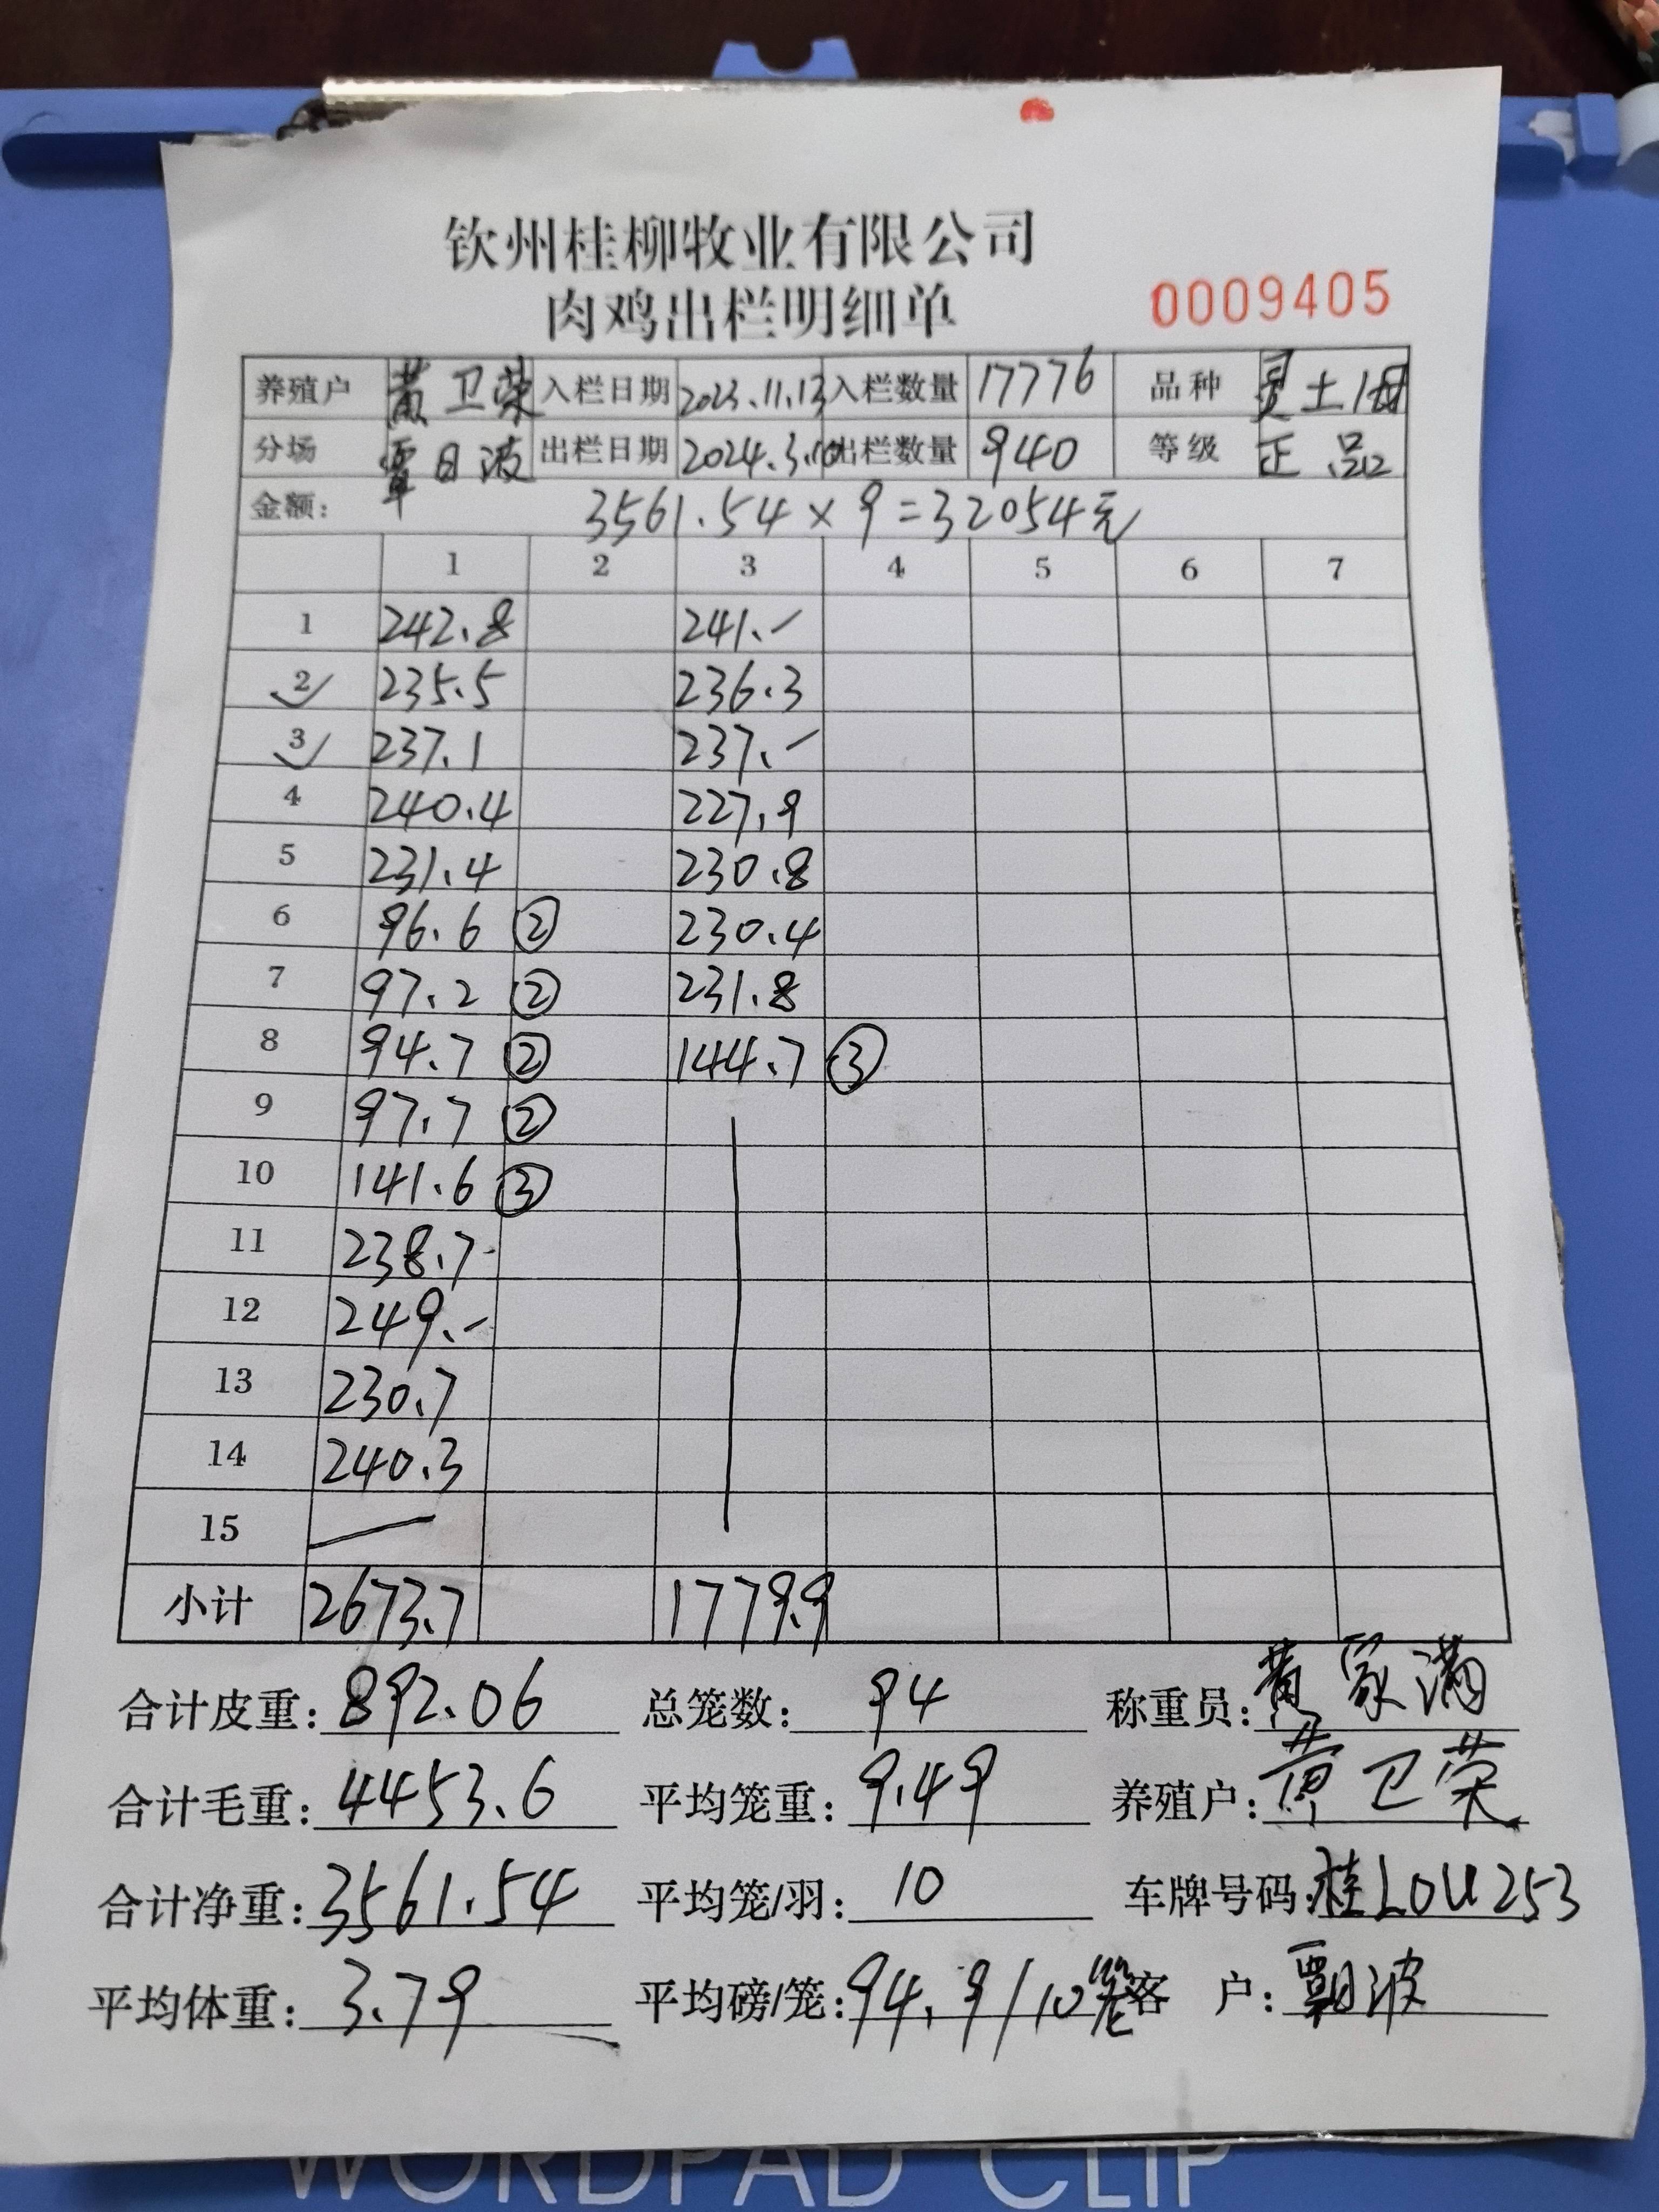 钦州桂柳牧业有限公司
肉鸡出栏明细单 0009405
养殖户 黄卫荣 入栏日期 2023.11.13 入栏数量 17776 品种 灵土1母
分场 覃日波 出栏日期 2024.3.10 出栏数量 940 等级 正品
金额: 3561.54×9=32054元
1 2 3 4 5 6 7
1 242.8 241.-
2 235.5 236.3
3 237.1 237.-
4 240.4 227.9
5 231.4 230.8
6 96.6 ② 230.4
7 97.2 ② 231.8
8 94.7 ② 144.7 ③
9 97.7 ②
10 141.6 ③
11 238.7
12 249.-
13 230.7
14 240.3
15
小计 2673.7 1779.9
合计皮重: 892.06 总笼数: 94 称重员: 黄家满
合计毛重: 4453.6 平均笼重: 9.49 养殖户: 黄卫荣
合计净重: 3561.54 平均笼/羽: 10 车牌号码: 桂L0U253
平均体重: 3.79 平均磅/笼: 94.9/10笼 客 户: 覃日波
WORDPAD CLIP